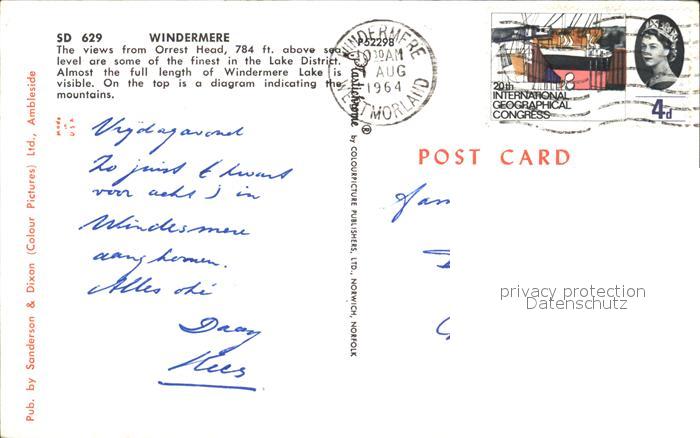 SD 629 WINDERMERE
The views from Orrest Head, 784 ft. above sea
level are some of the finest in the Lake District.
Almost the full length of Windermere Lake is
visible. On the top is a diagram indicating the
mountains.
Pub. by Sanderson & Dixon (Colour Pictures) Ltd., Ambleside
MADE
IN
U.S.A.
Vrijdagavond
Zo juist (kwart
voor acht) in
Windermere
aangekomen.
Alles oké
Daag
Kees
P62298
Plastichrome ®
BY COLOURPICTURE PUBLISHERS, LTD., NORWICH, NORFOLK
WINDERMERE
AM
AUG
1964
WESTMORLAND
20th
INTERNATIONAL
GEOGRAPHICAL
CONGRESS
4d
POST CARD
privacy protection
Datenschutz